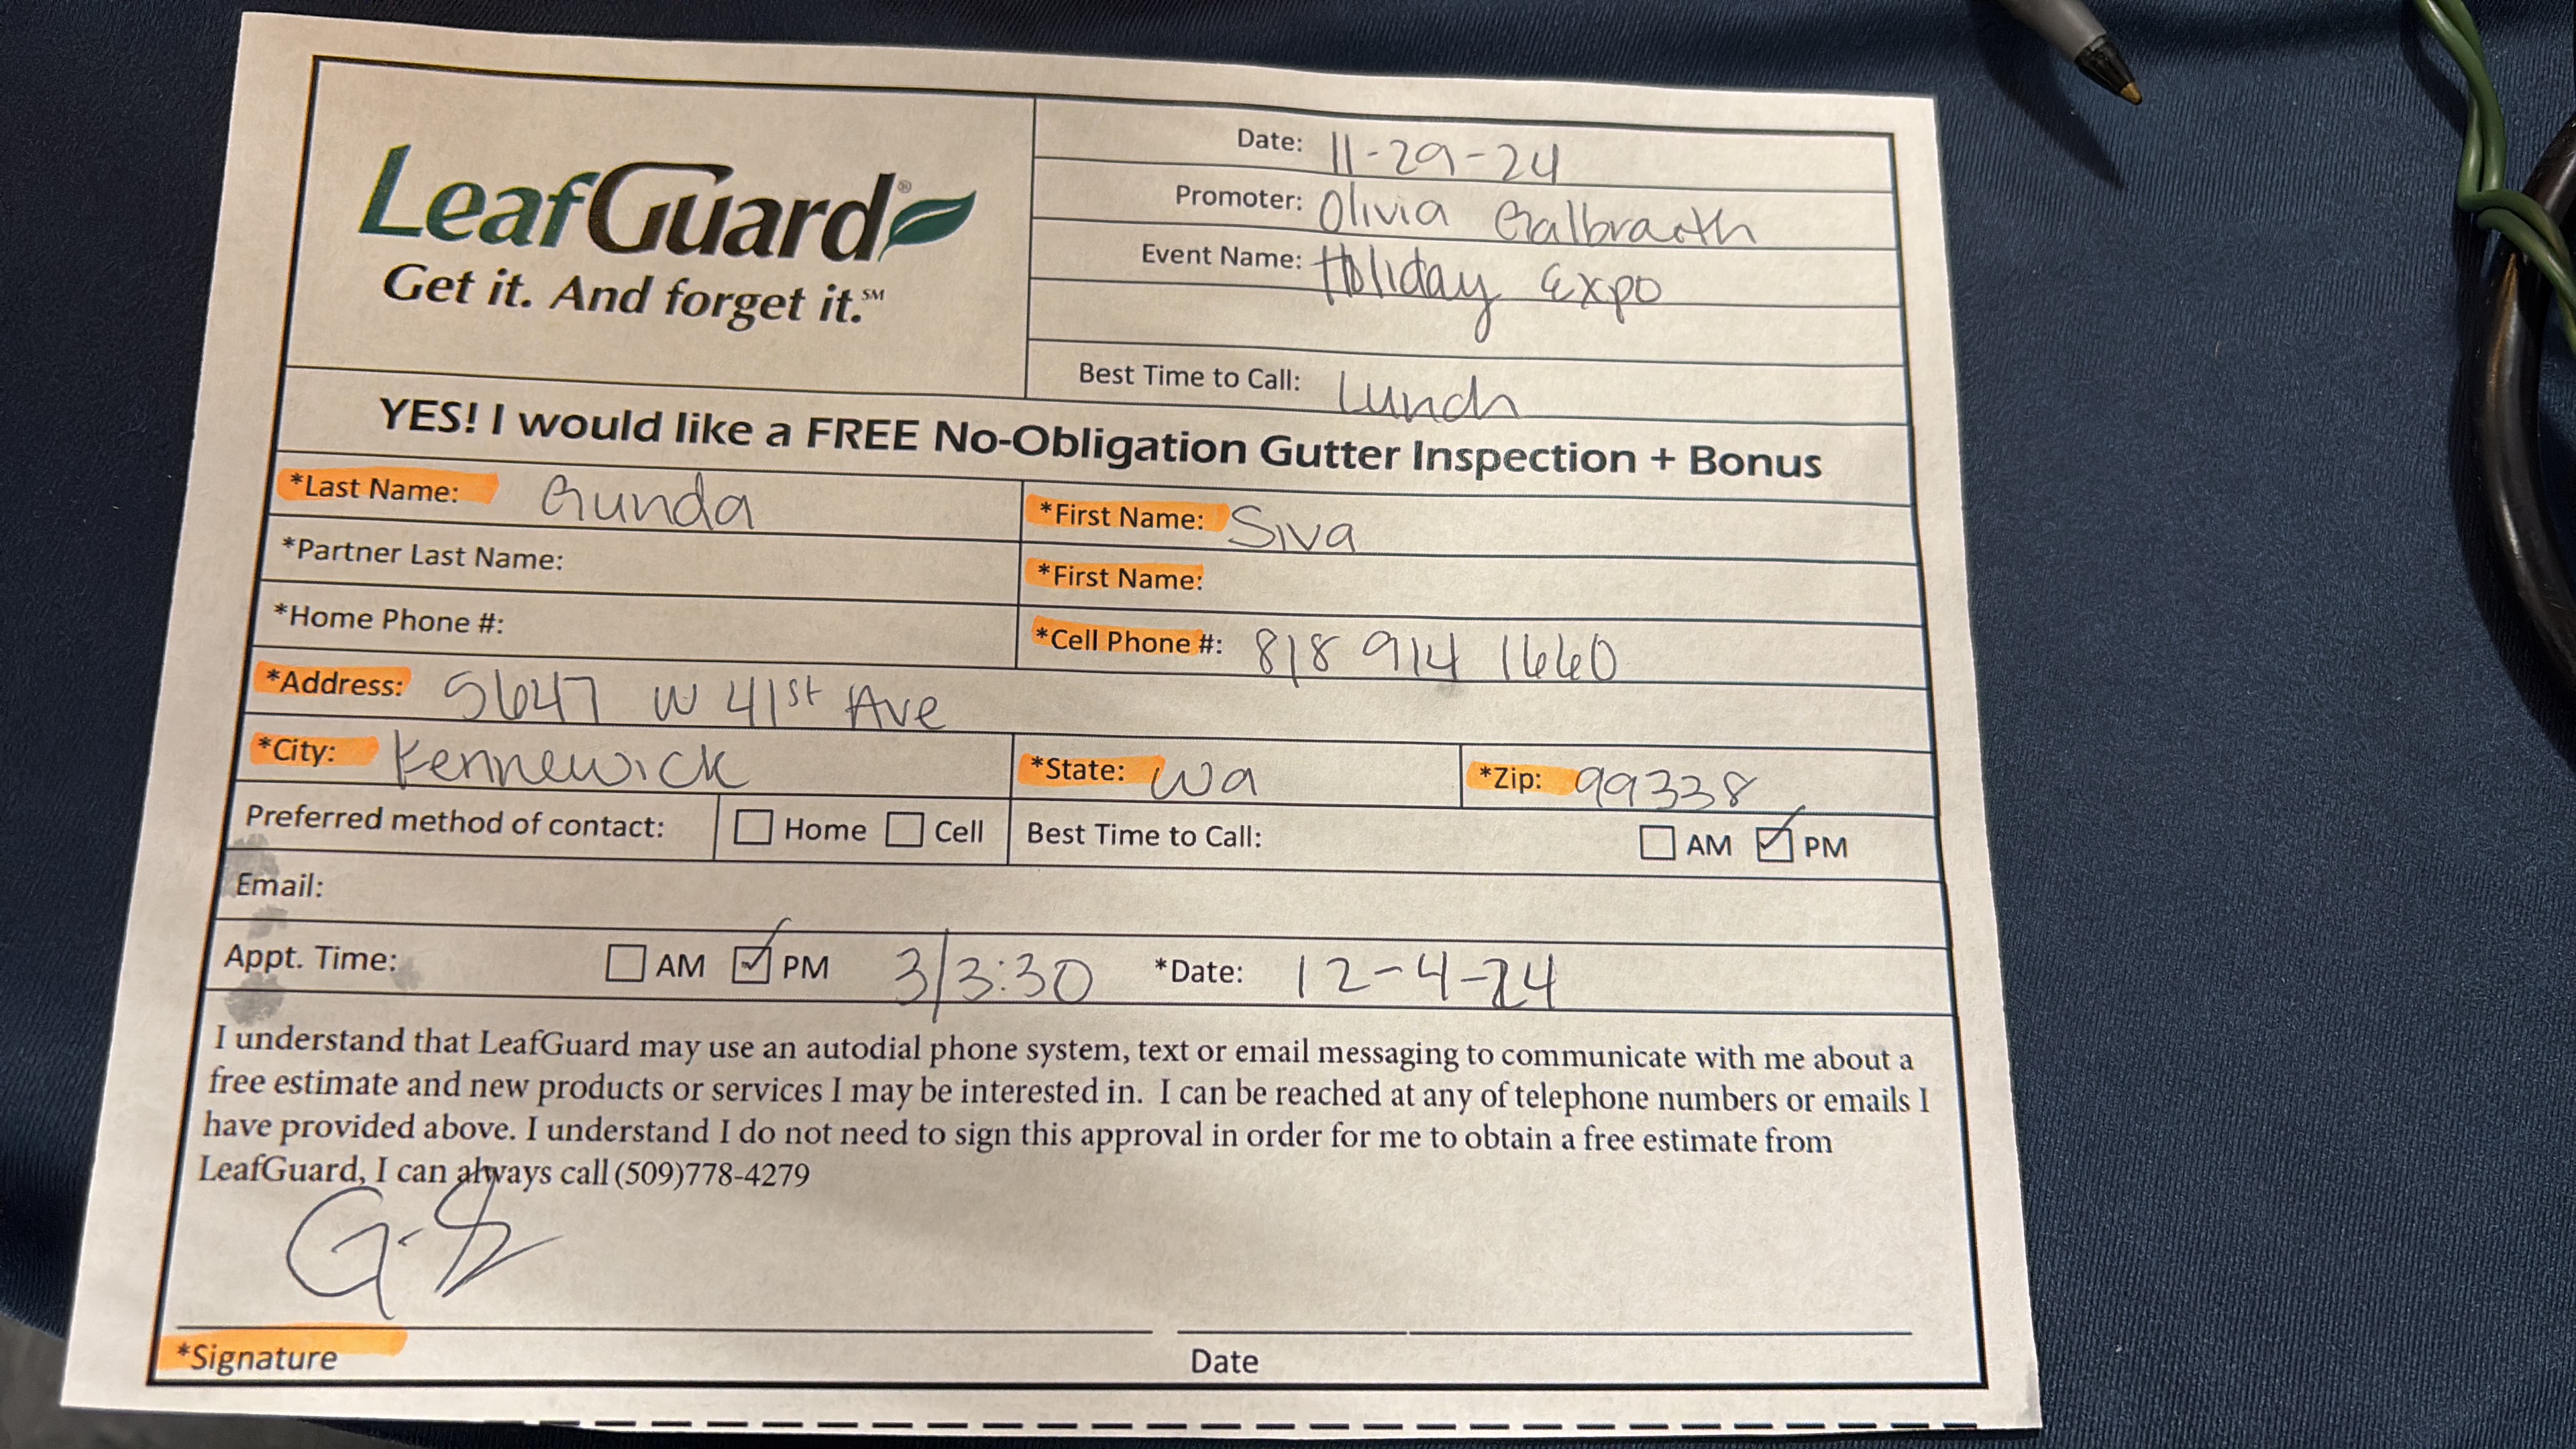 LeafGuard®
Get it. And forget it.℠
Date: 11-29-24
Promoter: Olivia Galbraith
Event Name: Holiday Expo
Best Time to Call: Lunch
YES! I would like a FREE No-Obligation Gutter Inspection + Bonus
*Last Name: Gunda *First Name: Siva
*Partner Last Name: *First Name:
*Home Phone #: *Cell Phone #: 818 914 1660
*Address: W 41st Ave
*City: Kennewick *State: Wa *Zip: 99338
Preferred method of contact: ☐ Home ☐ Cell Best Time to Call: ☐ AM ☑ PM
Email:
Appt. Time: ☐ AM ☑ PM 3/3:30 *Date: 12-4-24
I understand that LeafGuard may use an autodial phone system, text or email messaging to communicate with me about a
free estimate and new products or services I may be interested in. I can be reached at any of telephone numbers or emails I
have provided above. I understand I do not need to sign this approval in order for me to obtain a free estimate from
LeafGuard, I can always call (509)778-4279
*Signature Date